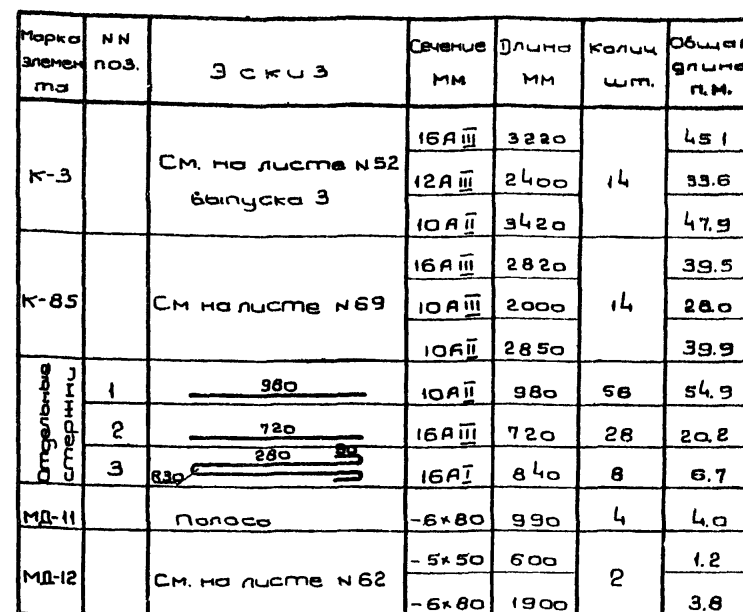 Марка элемен та | NN поз. | Эскиз | Сечение мм | Длина мм | Колич шт. | Общая длина п.м.
К-3 | | См. на листе N52 выпуска 3 | 16АIII | 3220 | 14 | 45 1
12АIII | 2400 | 33.6
10АII | 3420 | 47.9
К-85 | | См на листе N69 | 16АIII | 2820 | 14 | 39.5
10АIII | 2000 | 28.0
10АII | 2850 | 39.9
Отдельные стержни | 1 | 980 | 10АII | 980 | 56 | 54.9
2 | 720 | 16АIII | 720 | 28 | 20.2
3 | 280 | R30 | 16АI | 840 | 8 | 6.7
МД-11 | | Полоса | -6×80 | 990 | 4 | 4.0
МД-12 | | См. на листе N62 | -5×50 | 600 | 2 | 1.2
-6×80 | 1900 | 3.8